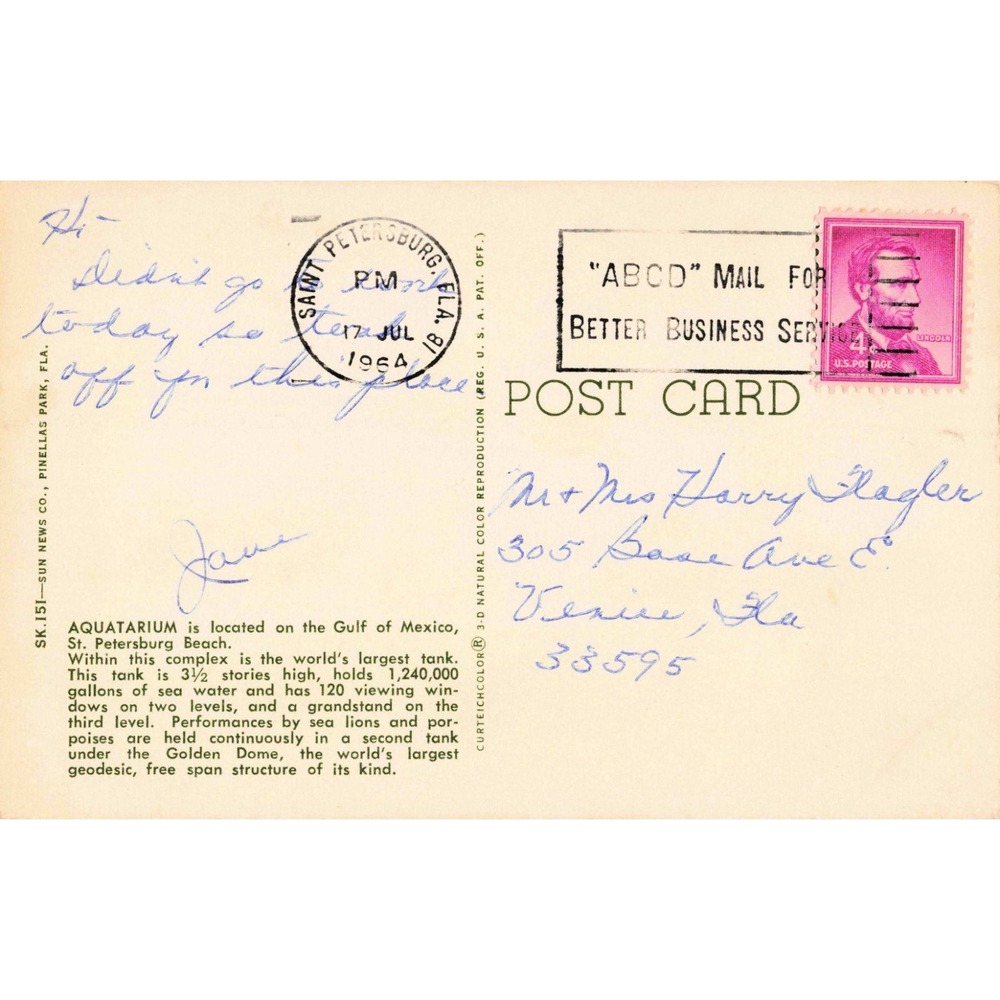 Hi -
Didn't go to work
today so took
off for this place
Jane
SAINT PETERSBURG, FLA. 81
PM
17 JUL
1964
"ABCD" MAIL FOR
BETTER BUSINESS SERVICE
4¢
LINCOLN
U.S. POSTAGE
POST CARD
Mr + Mrs Harry Flagler
305 Base Ave E.
Venice, Fla
33595
SK.151—SUN NEWS CO., PINELLAS PARK, FLA.
AQUATARIUM is located on the Gulf of Mexico,
St. Petersburg Beach.
Within this complex is the world's largest tank.
This tank is 3½ stories high, holds 1,240,000
gallons of sea water and has 120 viewing win-
dows on two levels, and a grandstand on the
third level. Performances by sea lions and por-
poises are held continuously in a second tank
under the Golden Dome, the world's largest
geodesic, free span structure of its kind.
CURTEICHCOLOR® 3-D NATURAL COLOR REPRODUCTION (REG. U. S. A. PAT. OFF.)